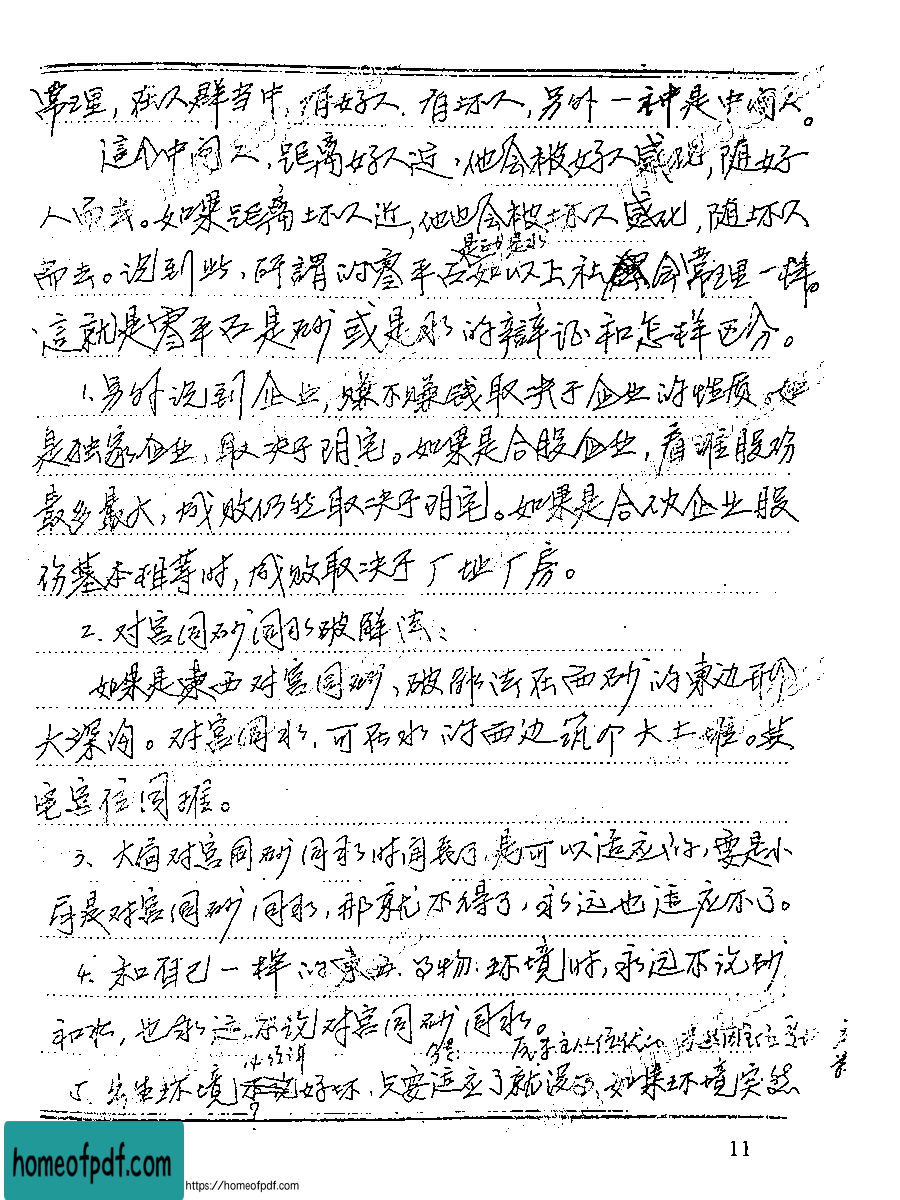 常理，在人群当中，有好人，有坏人，另外一种是中间人。
這个中间人，距离好人近，他会被好人感化，随好
人而去。如果距离坏人近，他也会被坏人感化，随坏人
而去。说到此，所謂的零平石如以上社会常理一样。
這就是零平石是砂或是水的辩证和怎样区分。
1.另外说到企业，赚不赚钱取决于企业的性质。如
是独家企业，取决于阴宅。如果是合股企业，看谁股份
最多最大，成败仍然取决于阴宅。如果是合伙企业股
份基本相等时，成败取决于厂址厂房。
2.对宫同砂同水破解法：
如果是東西对宫同砂，破解法在西砂的東边
大深沟。对宫同水，可在水的西边筑个大土堆。其
它宫位同推。
3、大局对宫同砂同水时间长了是可以适应的，要是小
局是对宫同砂同水，那就不得了，永远也适应不了。
4.和自己一样的東西.的物.环境时，永远不说砂
和水，也永远不说对宫同砂同水。
5.先生环境 好坏，只要适应了就没 如果环境突然
11
homeofpdf.com
https://homeofpdf.com